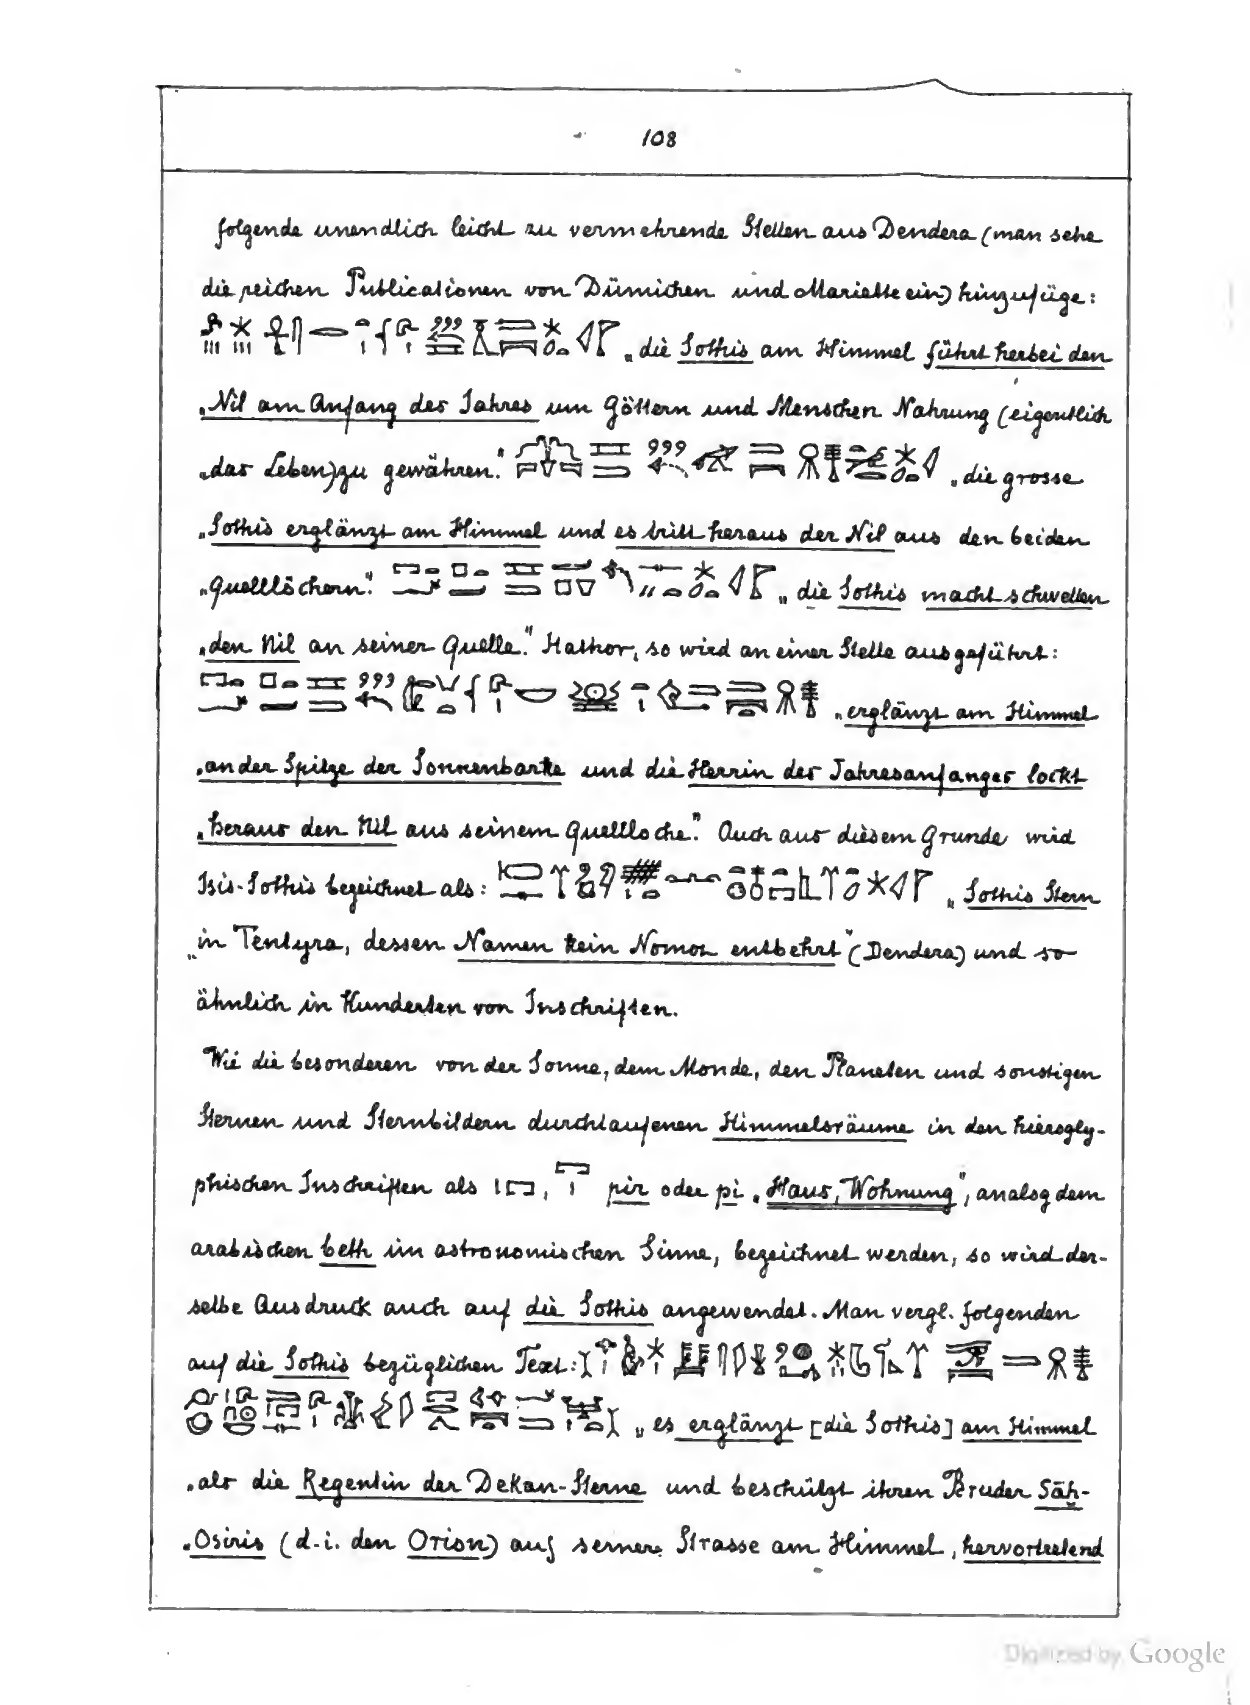 108
folgende unendlich leicht zu vermehrende Stellen aus Dendera (man sehe
die reichen Publicationen von Dümichen und Mariette ein) hinzufüge:
„die Sothis am Himmel führt herbei den
„Nil am Anfang des Jahres um Göttern und Menschen Nahrung (eigentlich
„das Leben) zu gewähren." „die grosse
„Sothis erglänzt am Himmel und es tritt heraus der Nil aus den beiden
„Quelllöchern". „die Sothis macht schwellen
„den Nil an seiner Quelle." Hathor, so wird an einer Stelle ausgeführt:
„erglänzt am Himmel
„an der Spitze der Sonnenbarke und die Herrin des Jahresanfanges lockt
„heraus den Nil aus seinem Quellloche". Auch aus diesem Grunde wird
Isis-Sothis bezeichnet als: „Sothis Stern
„in Tentyra, dessen Namen kein Nomos entbehrt" (Dendera) und so
ähnlich in Hunderten von Inschriften.
Wie die besonderen von der Sonne, dem Monde, den Planeten und sonstigen
Sternen und Sternbildern durchlaufenen Himmelsräume in den hierogly-
phischen Inschriften als , pir oder pi „Haus, Wohnung", analog dem
arabischen beth im astronomischen Sinne, bezeichnet werden, so wird der-
selbe Ausdruck auch auf die Sothis angewendet. Man vergl. folgenden
auf die Sothis bezüglichen Text:
„es erglänzt [die Sothis] am Himmel
„als die Regentin der Dekan-Sterne und beschützt ihren Bruder Sāh-
„Osiris (d.i. den Orion) auf seiner Strasse am Himmel, hervortretend
Digitized by Google